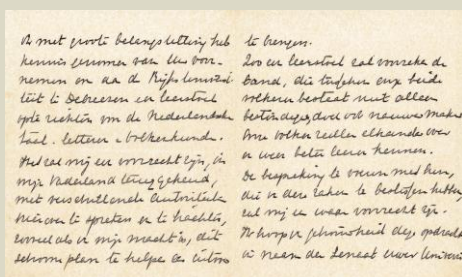 ik met groote belangstelling heb
kennis genomen van Uw voor-
nemen om aan de Rijks Universi-
teit te Debreczen een leerstoel
op te richten van de Nederlandsche
taal, letteren en volkenkunde.
Het zal mij een voorrecht zijn, in
mijn Vaderland teruggekeerd,
met verschillende autoriteiten
hierover te spreken en te trachten,
zooveel als in mijn macht is, dit
schoone plan te helpen
te brengen.
Zoo een leerstoel zal oorzaak de
band, die tusschen onze beide
volkeren bestaat niet alleen
bestendigen, doch ook nauwer maken
Onze volken zullen elkander over
en weer beter leeren kennen.
De bespreking te voeren met hen,
die in deze zaken te beslissen hebben,
zal mij een waar voorrecht zijn.
Ik hoop in gehoudheid deze opdracht
in naam der Senaat uwer Universi